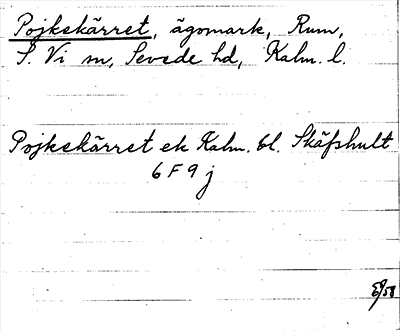 Pojkekärret, ägomark, Rum,
S. Vi sn, Sevede hd, Kalm. l.
Pojkekärret ek Kalm. bl. Skäfshult
6 F 9 j